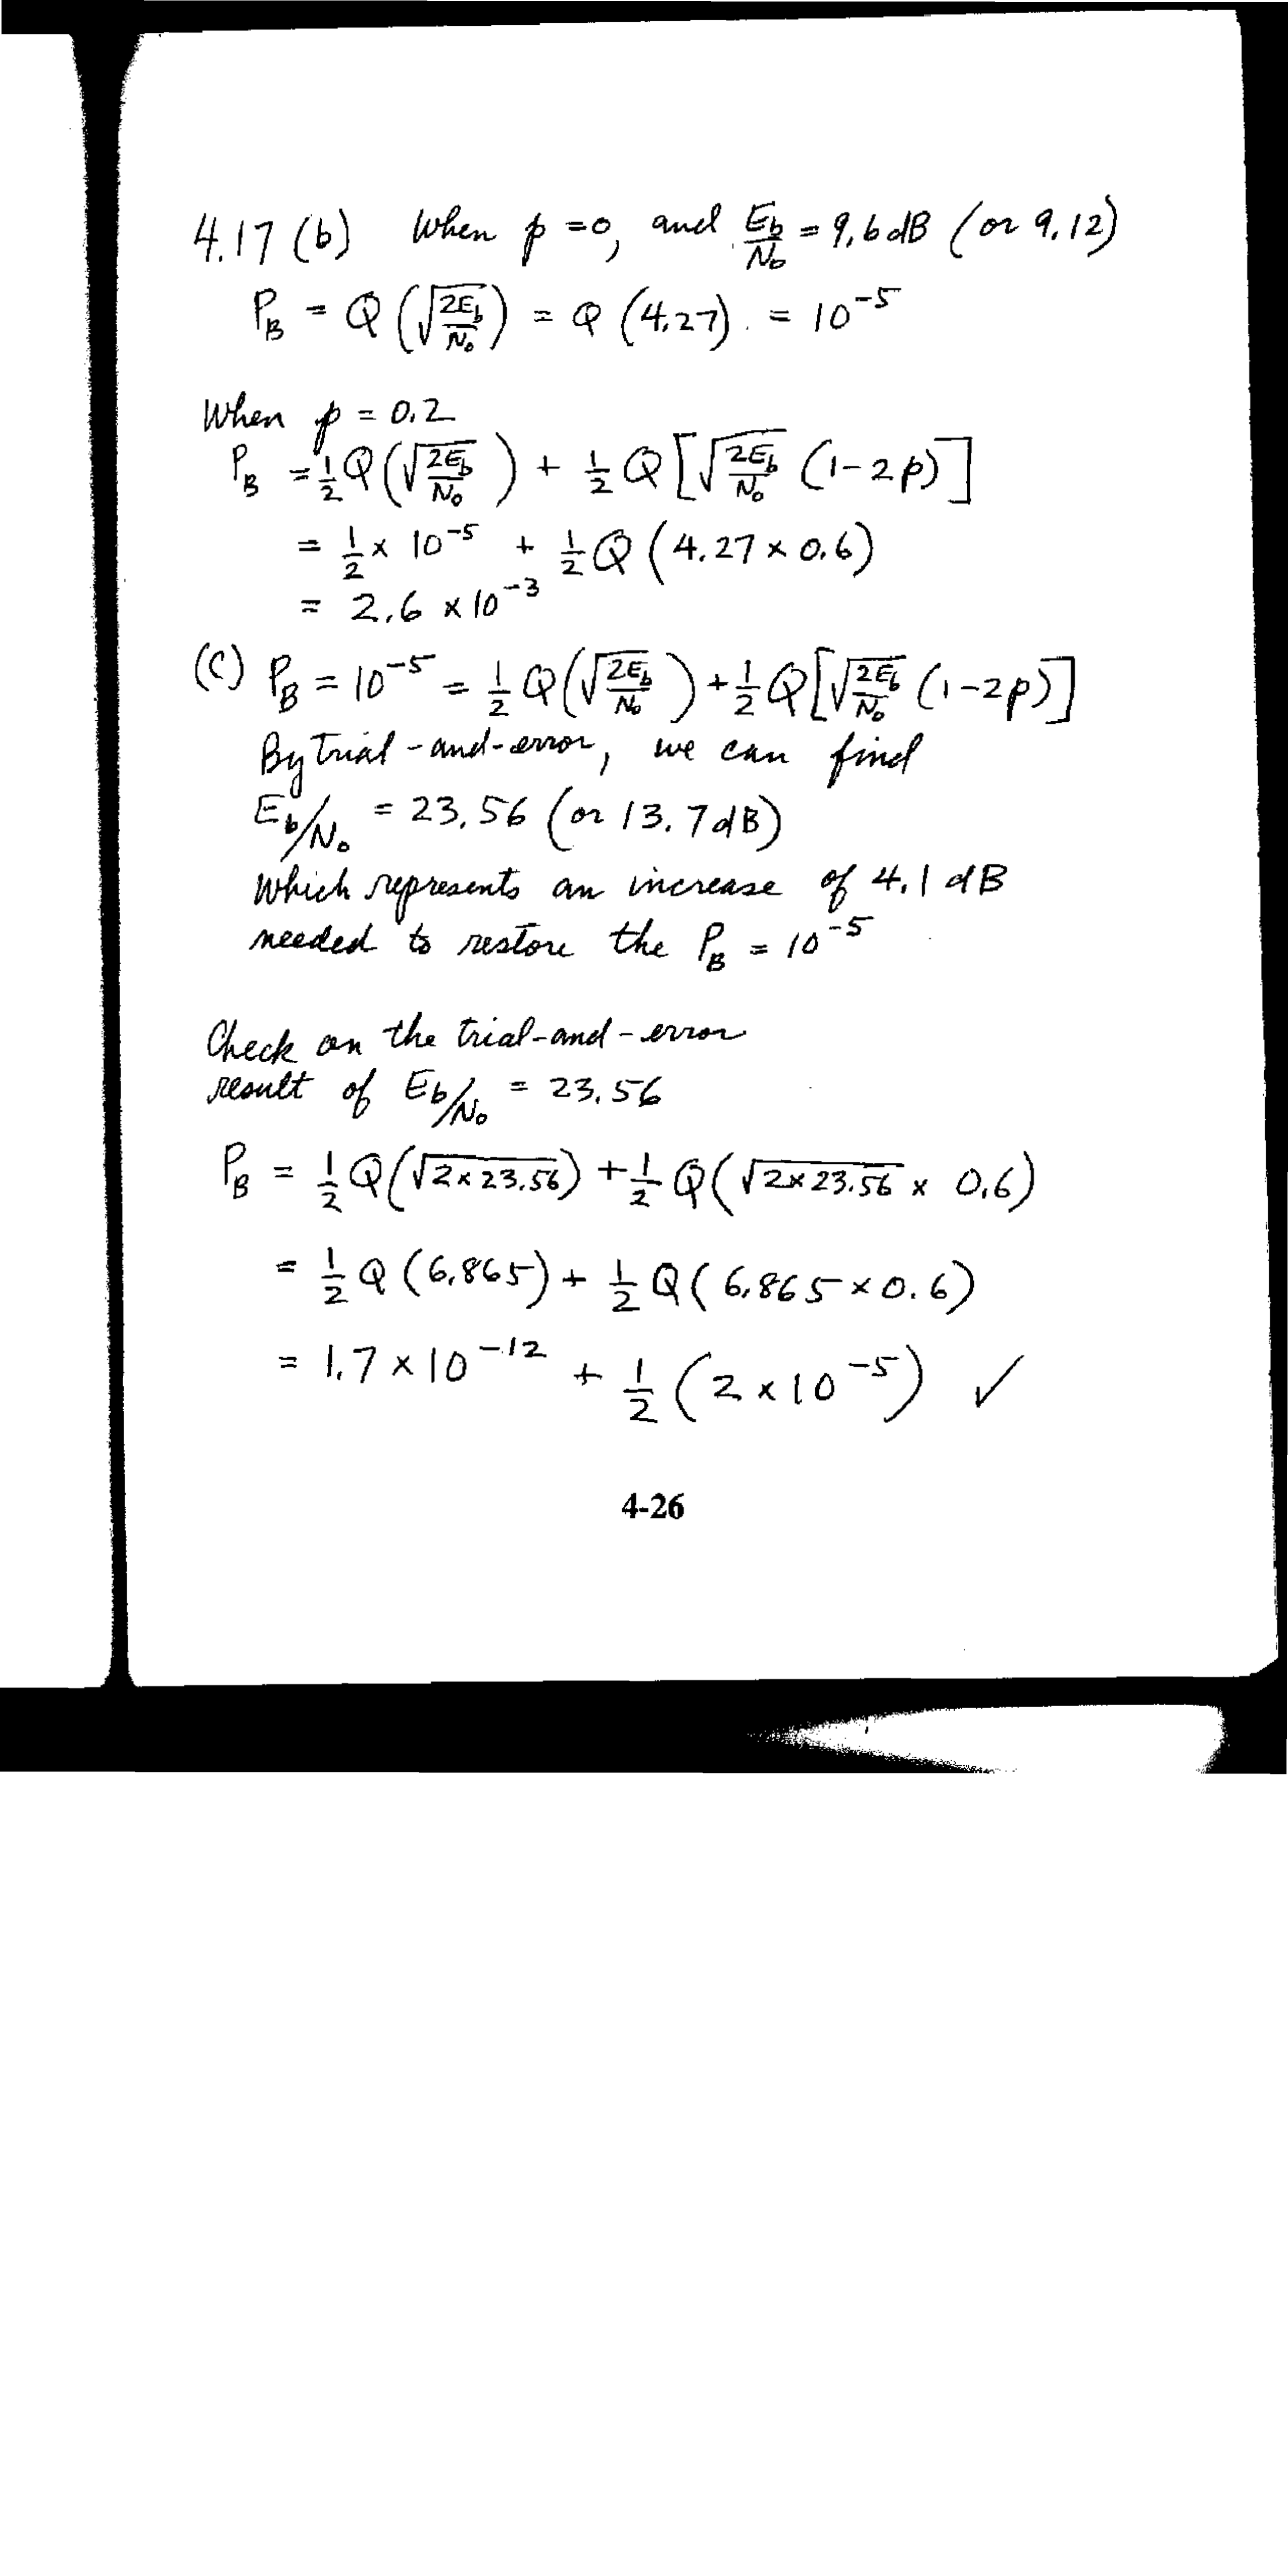 4.17 (b) When p = 0, and Eb/No = 9.6 dB (or 9.12)
PB = Q (√(2Eb/No)) = Q (4.27) = 10^-5
When p = 0.2
PB = 1/2 Q (√(2Eb/No)) + 1/2 Q [√(2Eb/No) (1-2p)]
= 1/2 × 10^-5 + 1/2 Q (4.27 × 0.6)
= 2.6 × 10^-3
(C) PB = 10^-5 = 1/2 Q (√(2Eb/No)) + 1/2 Q [√(2Eb/No) (1-2p)]
By trial-and-error, we can find
Eb/No = 23.56 (or 13.7 dB)
Which represents an increase of 4.1 dB
needed to restore the PB = 10^-5
Check on the trial-and-error
result of Eb/No = 23.56
PB = 1/2 Q (√(2×23.56)) + 1/2 Q (√(2×23.56) × 0.6)
= 1/2 Q (6.865) + 1/2 Q (6.865 × 0.6)
= 1.7 × 10^-12 + 1/2 (2 × 10^-5) ✓
4-26